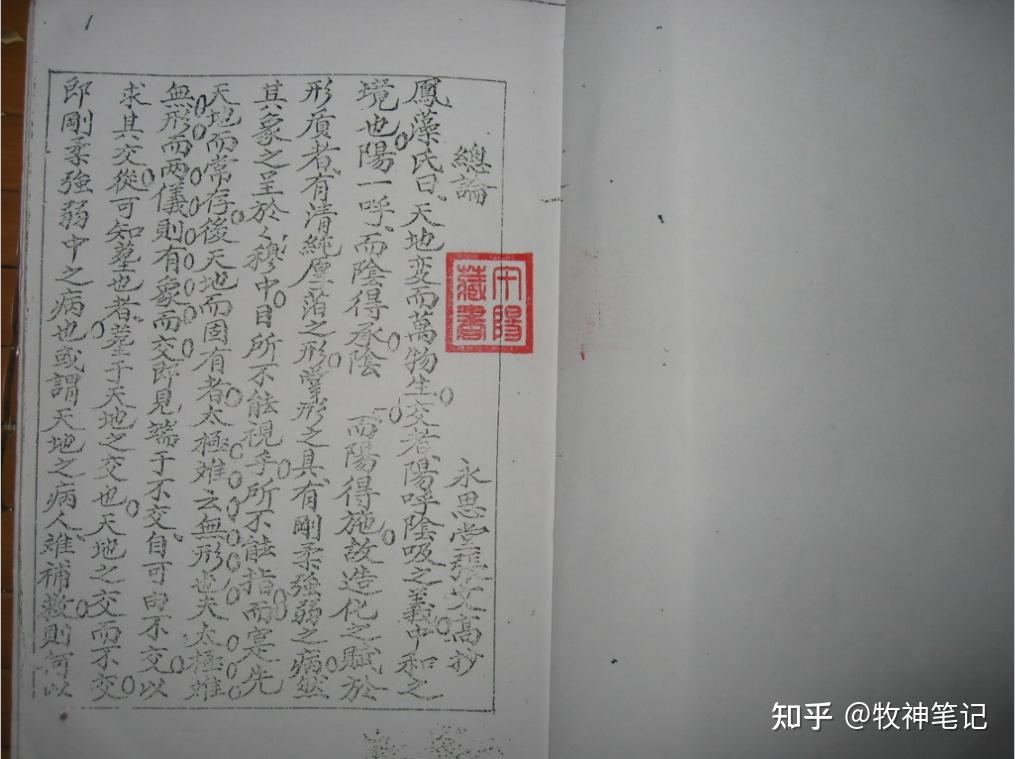 1
總論
永思堂張文高抄
鳳藻氏曰天地变而萬物生交若陽呼陰吸之義中和之
境也陽一呼而陰得承陰 而陽得施故造化之賦於
形质者有清純厚落之形掌形之具有剛柔強弱之病然
其象之呈於穆中目所不能視手所不能指而寔先
天地而常存後天地而固有者太極难云無形也夫太極难
無形而两儀則有象而交即見端于不交自可由不交以
求其交從可知墓也者墓于天地之交也天地之交而不交
即剛柔強弱中之病也或謂天地之病人难補救則何以
藏書
知乎 @牧神笔记